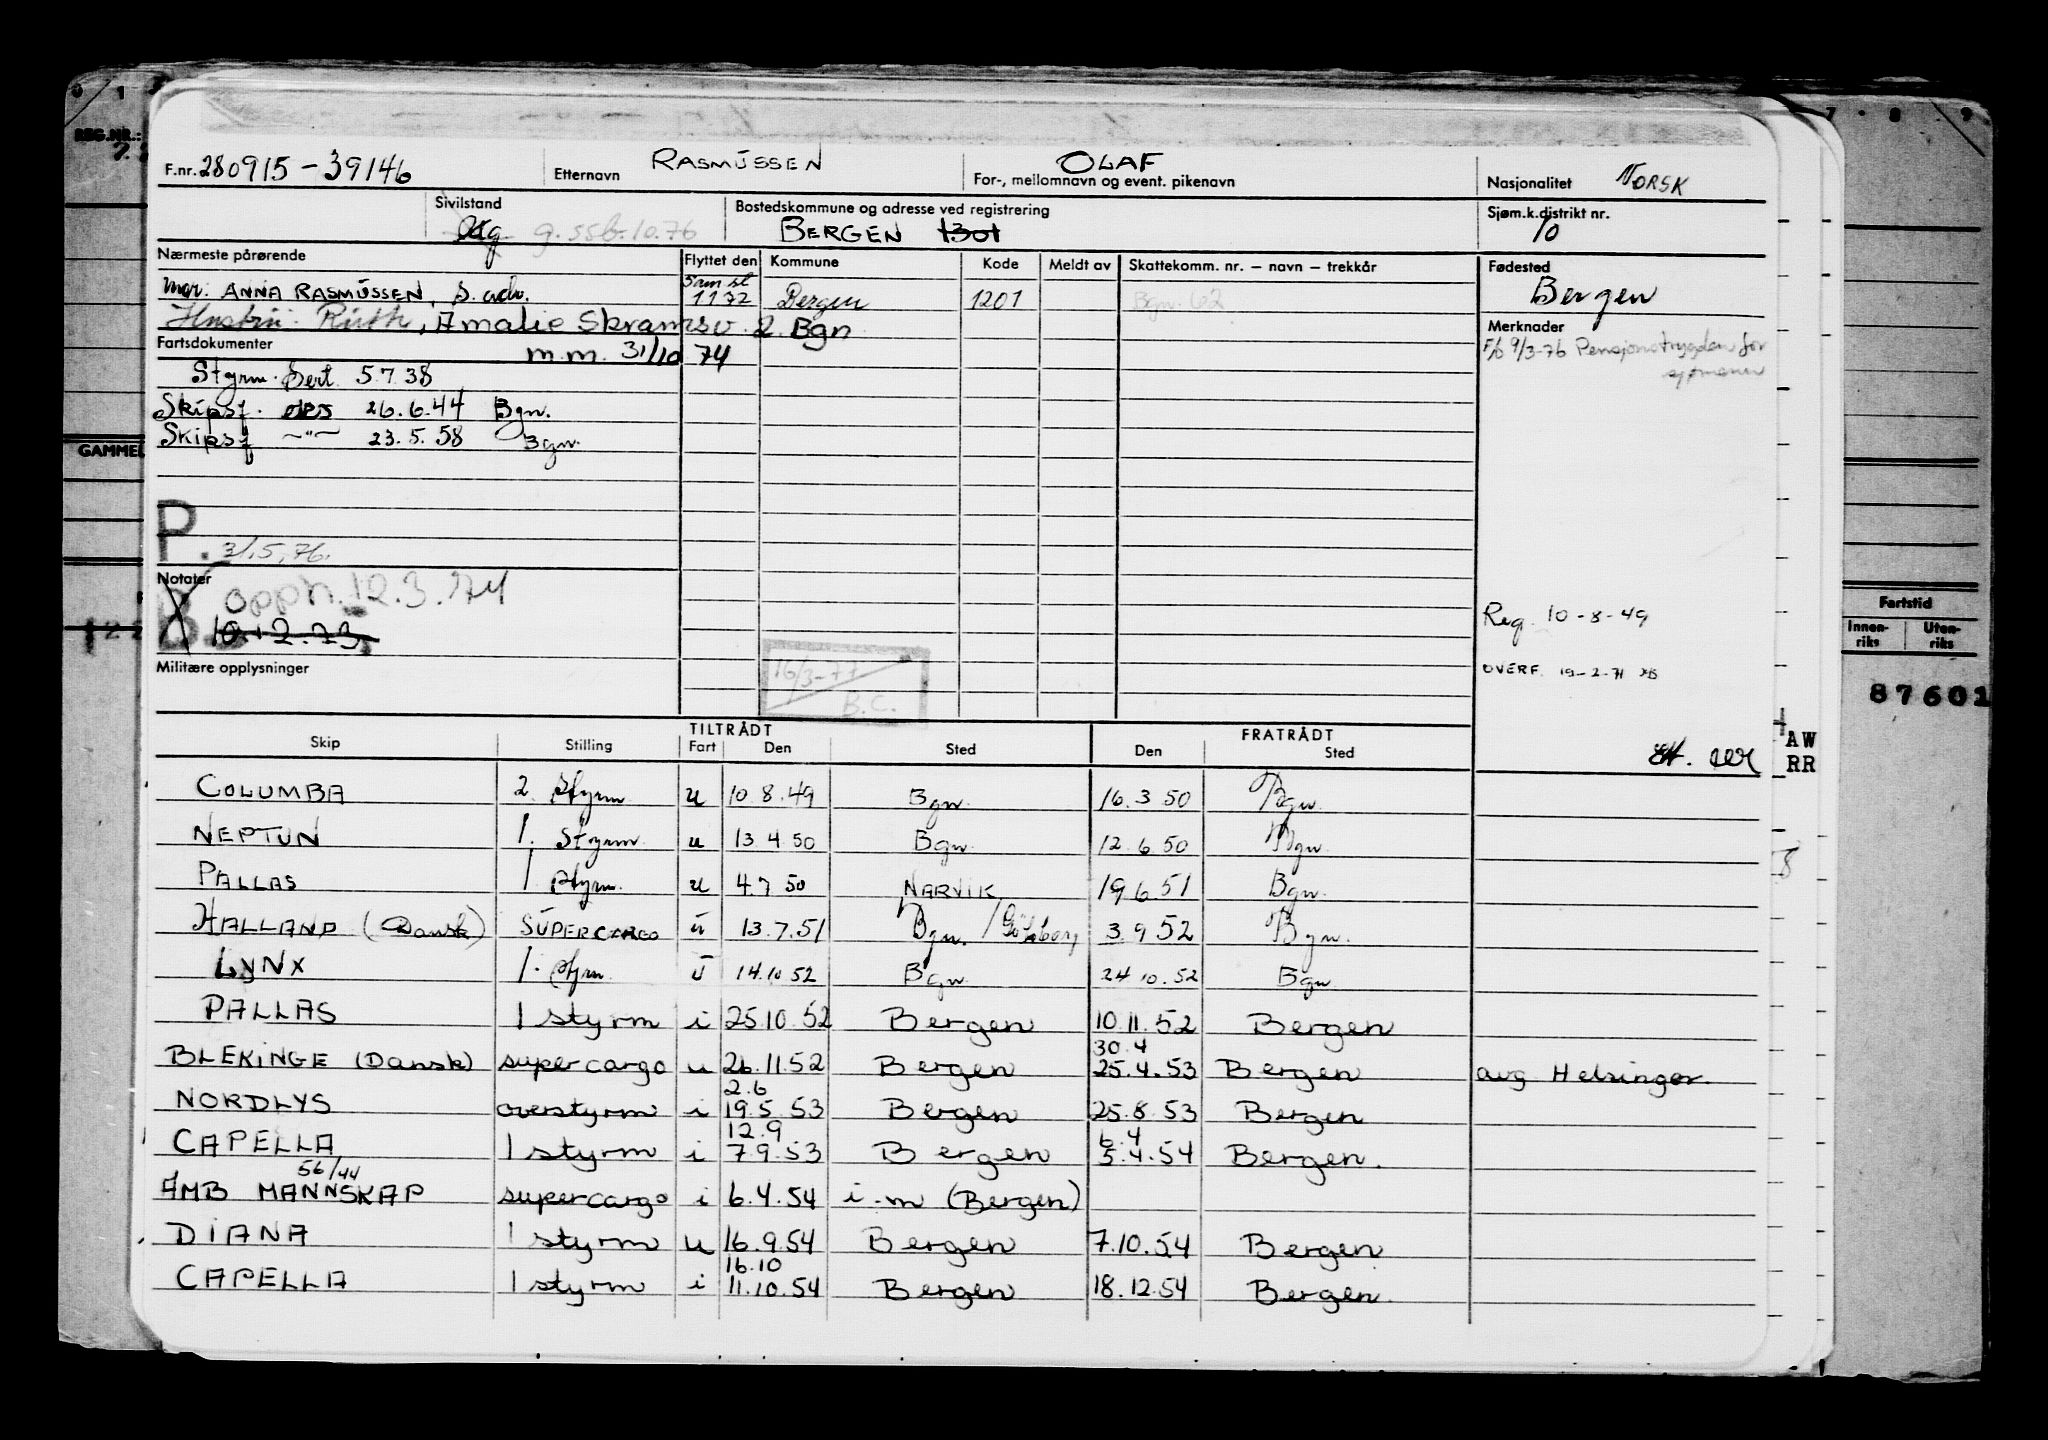 0 1 7 8 9
REG.NR.:
F.nr. 280915-39146 Etternavn RASMUSSEN OLAF For-, mellomnavn og event. pikenavn Nasjonalitet NORSK
Sivilstand Ug g. Bostedskommune og adresse ved registrering BERGEN 1301 Sjøm.k.distrikt nr. 10
Nærmeste pårørende Flyttet den Kommune Kode Meldt av Skattekomm. nr. – navn – trekkår Fødested Bergen
Mor: ANNA RASMUSSEN, S. adr. 1172 Bergen 1201 Bgn. 62
Hustru: Ruth, Amalie Skramsv. 2. Bgn
Merknader
9/3-76 Pensjonstrygden for sjømenn
Fartsdokumenter m.m. 31/10 74
Styrm. Sert. 5.7.38
Skipsf. 26.6.44 Bgn.
Skipsf -"- 23.5.58 Bgn.
GAMMEL
P. 31.5.76.
Notater
B. opph. 12.3.74
10.12.73.
Reg. 10-8-49
Militære opplysninger
16/3-77
B.C.
OVERF. 19-2-71
Fartstid
Innen-riks Uten-riks
87601
AW
RR
TILTRÅDT FRATRÅDT
Skip Stilling Fart Den Sted Den Sted
COLUMBA 2. Styrm u 10.8.49 Bgn. 16.3.50 Bgn.
NEPTUN 1. Styrm u 13.4.50 Bgn. 12.6.50 Bgn.
PALLAS 1 Styrm. u 4.7.50 NARVIK 19.6.51 Bgn.
HALLAND (Dansk) SUPERCARGO u 13.7.51 Bgn. / Göteborg 3.9.52 Bgn.
LYNX 1. Styrm u 14.10.52 Bgn 24.10.52 Bgn
PALLAS 1 styrm i 25.10.52 Bergen 10.11.52 Bergen
30.4
BLEKINGE (Dansk) supercargo u 26.11.52 Bergen 25.4.53 Bergen avg Helsingør.
2.6
NORDLYS overstyrm i 19.5.53 Bergen 25.8.53 Bergen
12.9 6.4
CAPELLA 1 styrm i 7.9.53 Bergen 5.4.54 Bergen.
56/44
AMB MANNSKAP supercargo i 6.4.54 i.m (Bergen)
DIANA 1 styrm u 16.9.54 Bergen 7.10.54 Bergen
16.10
CAPELLA 1 styrm i 11.10.54 Bergen 18.12.54 Bergen.